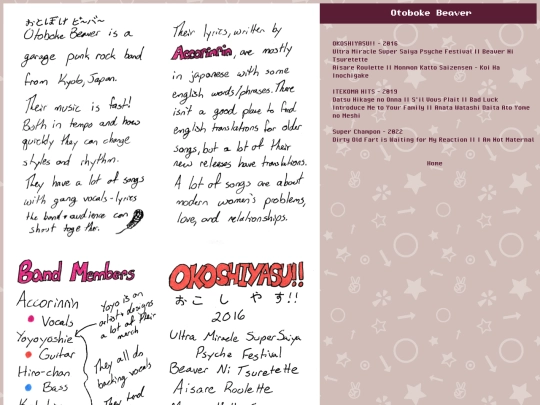 おとぼけ ビ〜バ〜
Otoboke Beaver is a
garage punk rock band
from Kyoto, Japan.
Their music is fast!
Both in tempo and how
quickly they can change
styles and rhythm.
They have a lot of songs
with gang vocals-lyrics
the band & audience can
shout together.
Their lyrics, written by
Accorinrin, are mostly
in japanese with some
english words/phrases. There
isn't a good place to find
english translations for older
songs, but a lot of their
new releases have translations.
A lot of songs are about
modern women's problems,
love, and relationships.
Band Members
Accorinrin
Vocals
Yoyoyoshie
Guitar
Hiro-chan
Bass
Yoyo is an
artist & designs
a lot of their
merch
They all do
backing vocals
OKOSHIYASU!!
おこしやす!!
2016
Ultra Miracle Super Saiya
Psyche Festival
Beaver Ni Tsuretette
Aisare Roulette
Otoboke Beaver
OKOSHIYASU!! - 2016
Ultra Miracle Super Saiya Psyche Festival || Beaver Ni
Tsuretette
Aisare Roulette || Monmon Katto Saizensen - Koi Ho
Inochigake
ITEKOMA HITS - 2019
Datsu Hikage no Onna || S'il Vous Plait || Bad Luck
Introduce Me to Your Family || Anata Watashi Daita Ato Yome
no Meshi
Super Champon - 2022
Dirty Old Fart is Waiting for My Reaction || I Am Not Maternal
Home